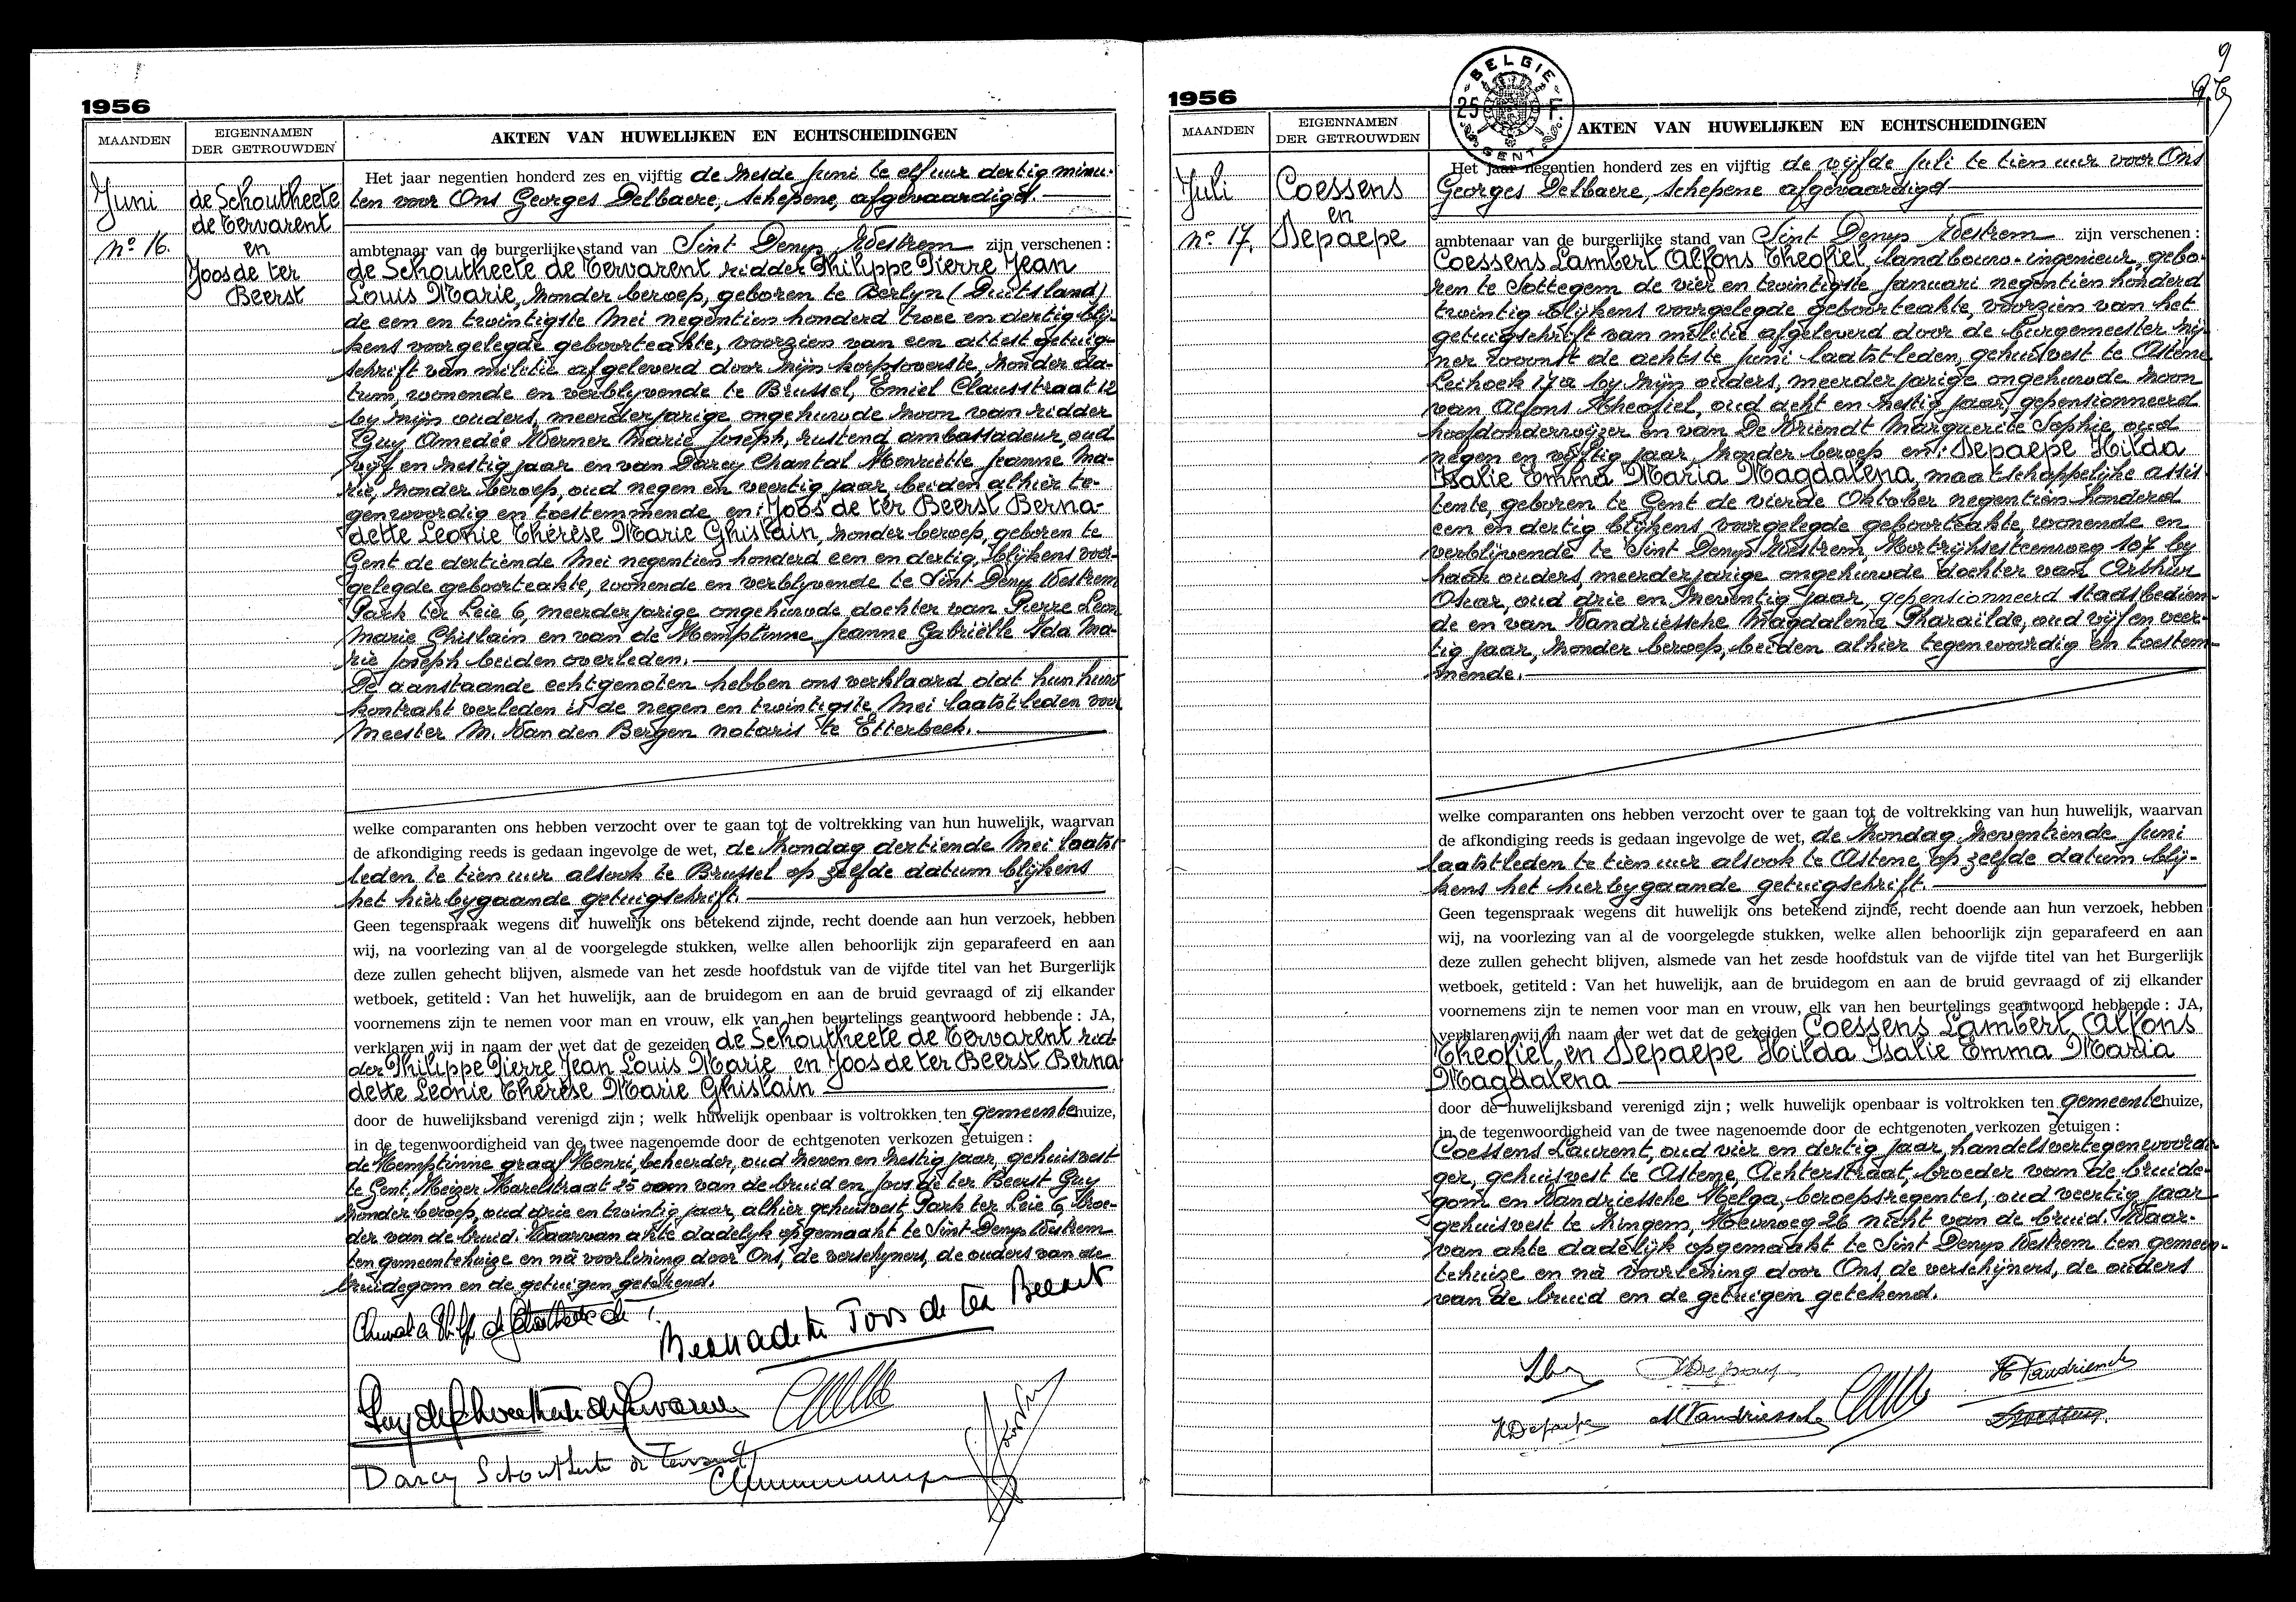 1956
MAANDEN
EIGENNAMEN
DER GETROUWDEN
AKTEN VAN HUWELIJKEN EN ECHTSCHEIDINGEN
Juni
nº 16.
de Schoutheete
de Tervarent
en
Joos de ter
Beerst
Het jaar negentien honderd zes en vijftig de zesde Juni te elf uur dertig minu-
ten voor Ons Georges Delbaere, schepene, afgevaardigd.
ambtenaar van de burgerlijke stand van Sint Denys Westrem zijn verschenen :
de Schoutheete de Tervarent ridder Philippe Pierre Jean
Louis Marie, zonder beroep, geboren te Berlyn (Duitsland)
de een en twintigste Mei negentien honderd twee en dertig blij-
kens voorgelegde geboorteakte, voorzien van een attest getuig-
schrift van militie afgeleverd door zijn korpsoverste, zonder da-
tum, wonende en verblyvende te Brussel, Emiel Clausstraat 12
by zijn ouders, meerderjarige ongehuwde zoon van ridder
Guy Amedée Werner Marie Joseph, rustend ambassadeur, oud
vijf en zestig jaar en van Darcy Chantal Henriëtte Jeanne Ma-
rie, zonder beroep, oud negen en veertig jaar, beiden alhier te-
genwoordig en toestemmende en : Joos de ter Beerst Berna-
dette Leonie Thérèse Marie Ghislain, zonder beroep, geboren te
Gent de dertiende Mei negentien honderd een en dertig, blijkens voor-
gelegde geboorteakte, wonende en verblyvende te Sint Denys Westrem
Park ter Leie 6, meerderjarige ongehuwde dochter van Pierre Leon
Marie Ghislain en van de Hemptinne Jeanne Gabriëlle Ida Ma-
rie Joseph beiden overleden.
De aanstaande echtgenoten hebben ons verklaard dat hun huw
kontrakt verleden is de negen en twintigste Mei laatstleden voor
Meester M. Van den Bergen notaris te Etterbeek.
welke comparanten ons hebben verzocht over te gaan tot de voltrekking van hun huwelijk, waarvan
de afkondiging reeds is gedaan ingevolge de wet, de zondag dertiende Mei laatst
leden te tien uur alsook te Brussel op zelfde datum blijkens
het hierbygaande getuigschrift.
Geen tegenspraak wegens dit huwelijk ons betekend zijnde, recht doende aan hun verzoek, hebben
wij, na voorlezing van al de voorgelegde stukken, welke allen behoorlijk zijn geparafeerd en aan
deze zullen gehecht blijven, alsmede van het zesde hoofdstuk van de vijfde titel van het Burgerlijk
wetboek, getiteld : Van het huwelijk, aan de bruidegom en aan de bruid gevraagd of zij elkander
voornemens zijn te nemen voor man en vrouw, elk van hen beurtelings geantwoord hebbende : JA,
verklaren wij in naam der wet dat de gezeiden de Schoutheete de Tervarent rid-
der Philippe Pierre Jean Louis Marie en Joos de ter Beerst Berna
dette Leonie Thérèse Marie Ghislain
door de huwelijksband verenigd zijn ; welk huwelijk openbaar is voltrokken ten gemeentehuize,
in de tegenwoordigheid van de twee nagenoemde door de echtgenoten verkozen getuigen :
de Hemptinne graaf Henri, beheerder, oud zeven en zestig jaar, gehuisvest
te Gent, Keizer Karelstraat 25 oom van de bruid en Joos de ter Beerst Guy
zonder beroep, oud drie en twintig jaar, alhier gehuisvest Park ter Leie 6, broe-
der van de bruid. Waarvan akte dadelyk opgemaakt te Sint Denys Westrem
ten gemeentehuize en na voorlezing door Ons, de verschyners, de ouders van de
bruidegom en de getuigen getekend.
Bernadette Joos de ter Beerst
Guy de Schoutheete de Tervarent
Darcy Schoutheete de Tervarent
9
1956
BELGIE
25 F.
GENT
MAANDEN
EIGENNAMEN
DER GETROUWDEN
AKTEN VAN HUWELIJKEN EN ECHTSCHEIDINGEN
Juli
nº 17.
Coessens
en
Depaepe
Het jaar negentien honderd zes en vijftig de vijfde Juli te tien uur voor Ons
Georges Delbaere, schepene afgevaardigd
ambtenaar van de burgerlijke stand van Sint Denys Westrem zijn verschenen :
Coessens Lambert Alfons Theofiel, landbouw-ingenieur, gebo-
ren te Sottegem de vier en twintigste Januari negentien honderd
twintig blijkens voorgelegde geboorteakte, voorzien van het
getuigschrift van militie afgeleverd door de burgemeester zij-
ner woonst de achtste Juni laatstleden, gehuisvest te Astene
Leihoek 17a by zijn ouders, meerderjarige ongehuwde zoon
van Alfons Theofiel, oud acht en zestig jaar, gepensionneerd
hoofdonderwijzer en van De Vriendt Marguerite Sophie, oud
negen en vijftig jaar zonder beroep en : Depaepe Hilda
Isalie Emma Maria Magdalena, maatschappelijke assis
tente, geboren te Gent de vierde Oktober negentien honderd
een en dertig blijkens voorgelegde geboorteakte, wonende en
verblijvende te Sint Denys Westrem, Kortrijksesteenweg 107 by
haar ouders, meerderjarige ongehuwde dochter van Arthur
Oscar, oud drie en zeventig jaar, gepensionneerd stadsbedien-
de en van Vandriessche Magdalena Pharaïlde, oud vijf en veer-
tig jaar, zonder beroep, beiden alhier tegenwoordig en toestem-
mende.
welke comparanten ons hebben verzocht over te gaan tot de voltrekking van hun huwelijk, waarvan
de afkondiging reeds is gedaan ingevolge de wet, de zondag zeventiende Juni
laatstleden te tien uur alsook te Astene, op zelfde datum blij-
kens het hierbygaande getuigschrift.
Geen tegenspraak wegens dit huwelijk ons betekend zijnde, recht doende aan hun verzoek, hebben
wij, na voorlezing van al de voorgelegde stukken, welke allen behoorlijk zijn geparafeerd en aan
deze zullen gehecht blijven, alsmede van het zesde hoofdstuk van de vijfde titel van het Burgerlijk
wetboek, getiteld : Van het huwelijk, aan de bruidegom en aan de bruid gevraagd of zij elkander
voornemens zijn te nemen voor man en vrouw, elk van hen beurtelings geantwoord hebbende : JA,
verklaren wij in naam der wet dat de gezeiden Coessens Lambert Alfons
Theofiel en Depaepe Hilda Isalie Emma Maria
Magdalena
door de huwelijksband verenigd zijn ; welk huwelijk openbaar is voltrokken ten gemeentehuize,
in de tegenwoordigheid van de twee nagenoemde door de echtgenoten verkozen getuigen :
Coessens Laurent, oud vier en dertig jaar, handelsvertegenwoordi-
ger, gehuisvest te Astene, Achterstraat, broeder van de bruide-
gom en Vandriessche Helga, beroepsregentes, oud veertig jaar
gehuisvest te Zingem, Heuvweg 26 nicht van de bruid. Waar-
van akte dadelijk opgemaakt te Sint Denys Westrem ten gemeen-
tehuize en na voorlezing door Ons, de verschijners, de ouders
van de bruid en de getuigen getekend.
HDepaepe
MVandriessche